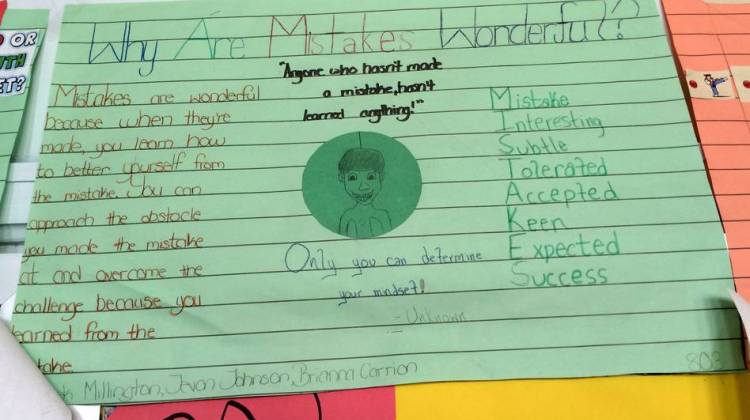 Why Are Mistakes Wonderful?
"Anyone who hasn't made
a mistake, hasn't
learned anything!"
Mistakes are wonderful
because when they're
made, you learn how
to better yourself from
the mistake. You can
approach the obstacle
you made the mistake
at and overcome the
challenge because you
learned from the
Mistake
Interesting
Subtle
Tolerated
Accepted
Keen
Expected
Success
Only you can determine
your mindset!
- Unknown
Millington, Jevon Johnson, Brianna Carrion
803
OR
ET?